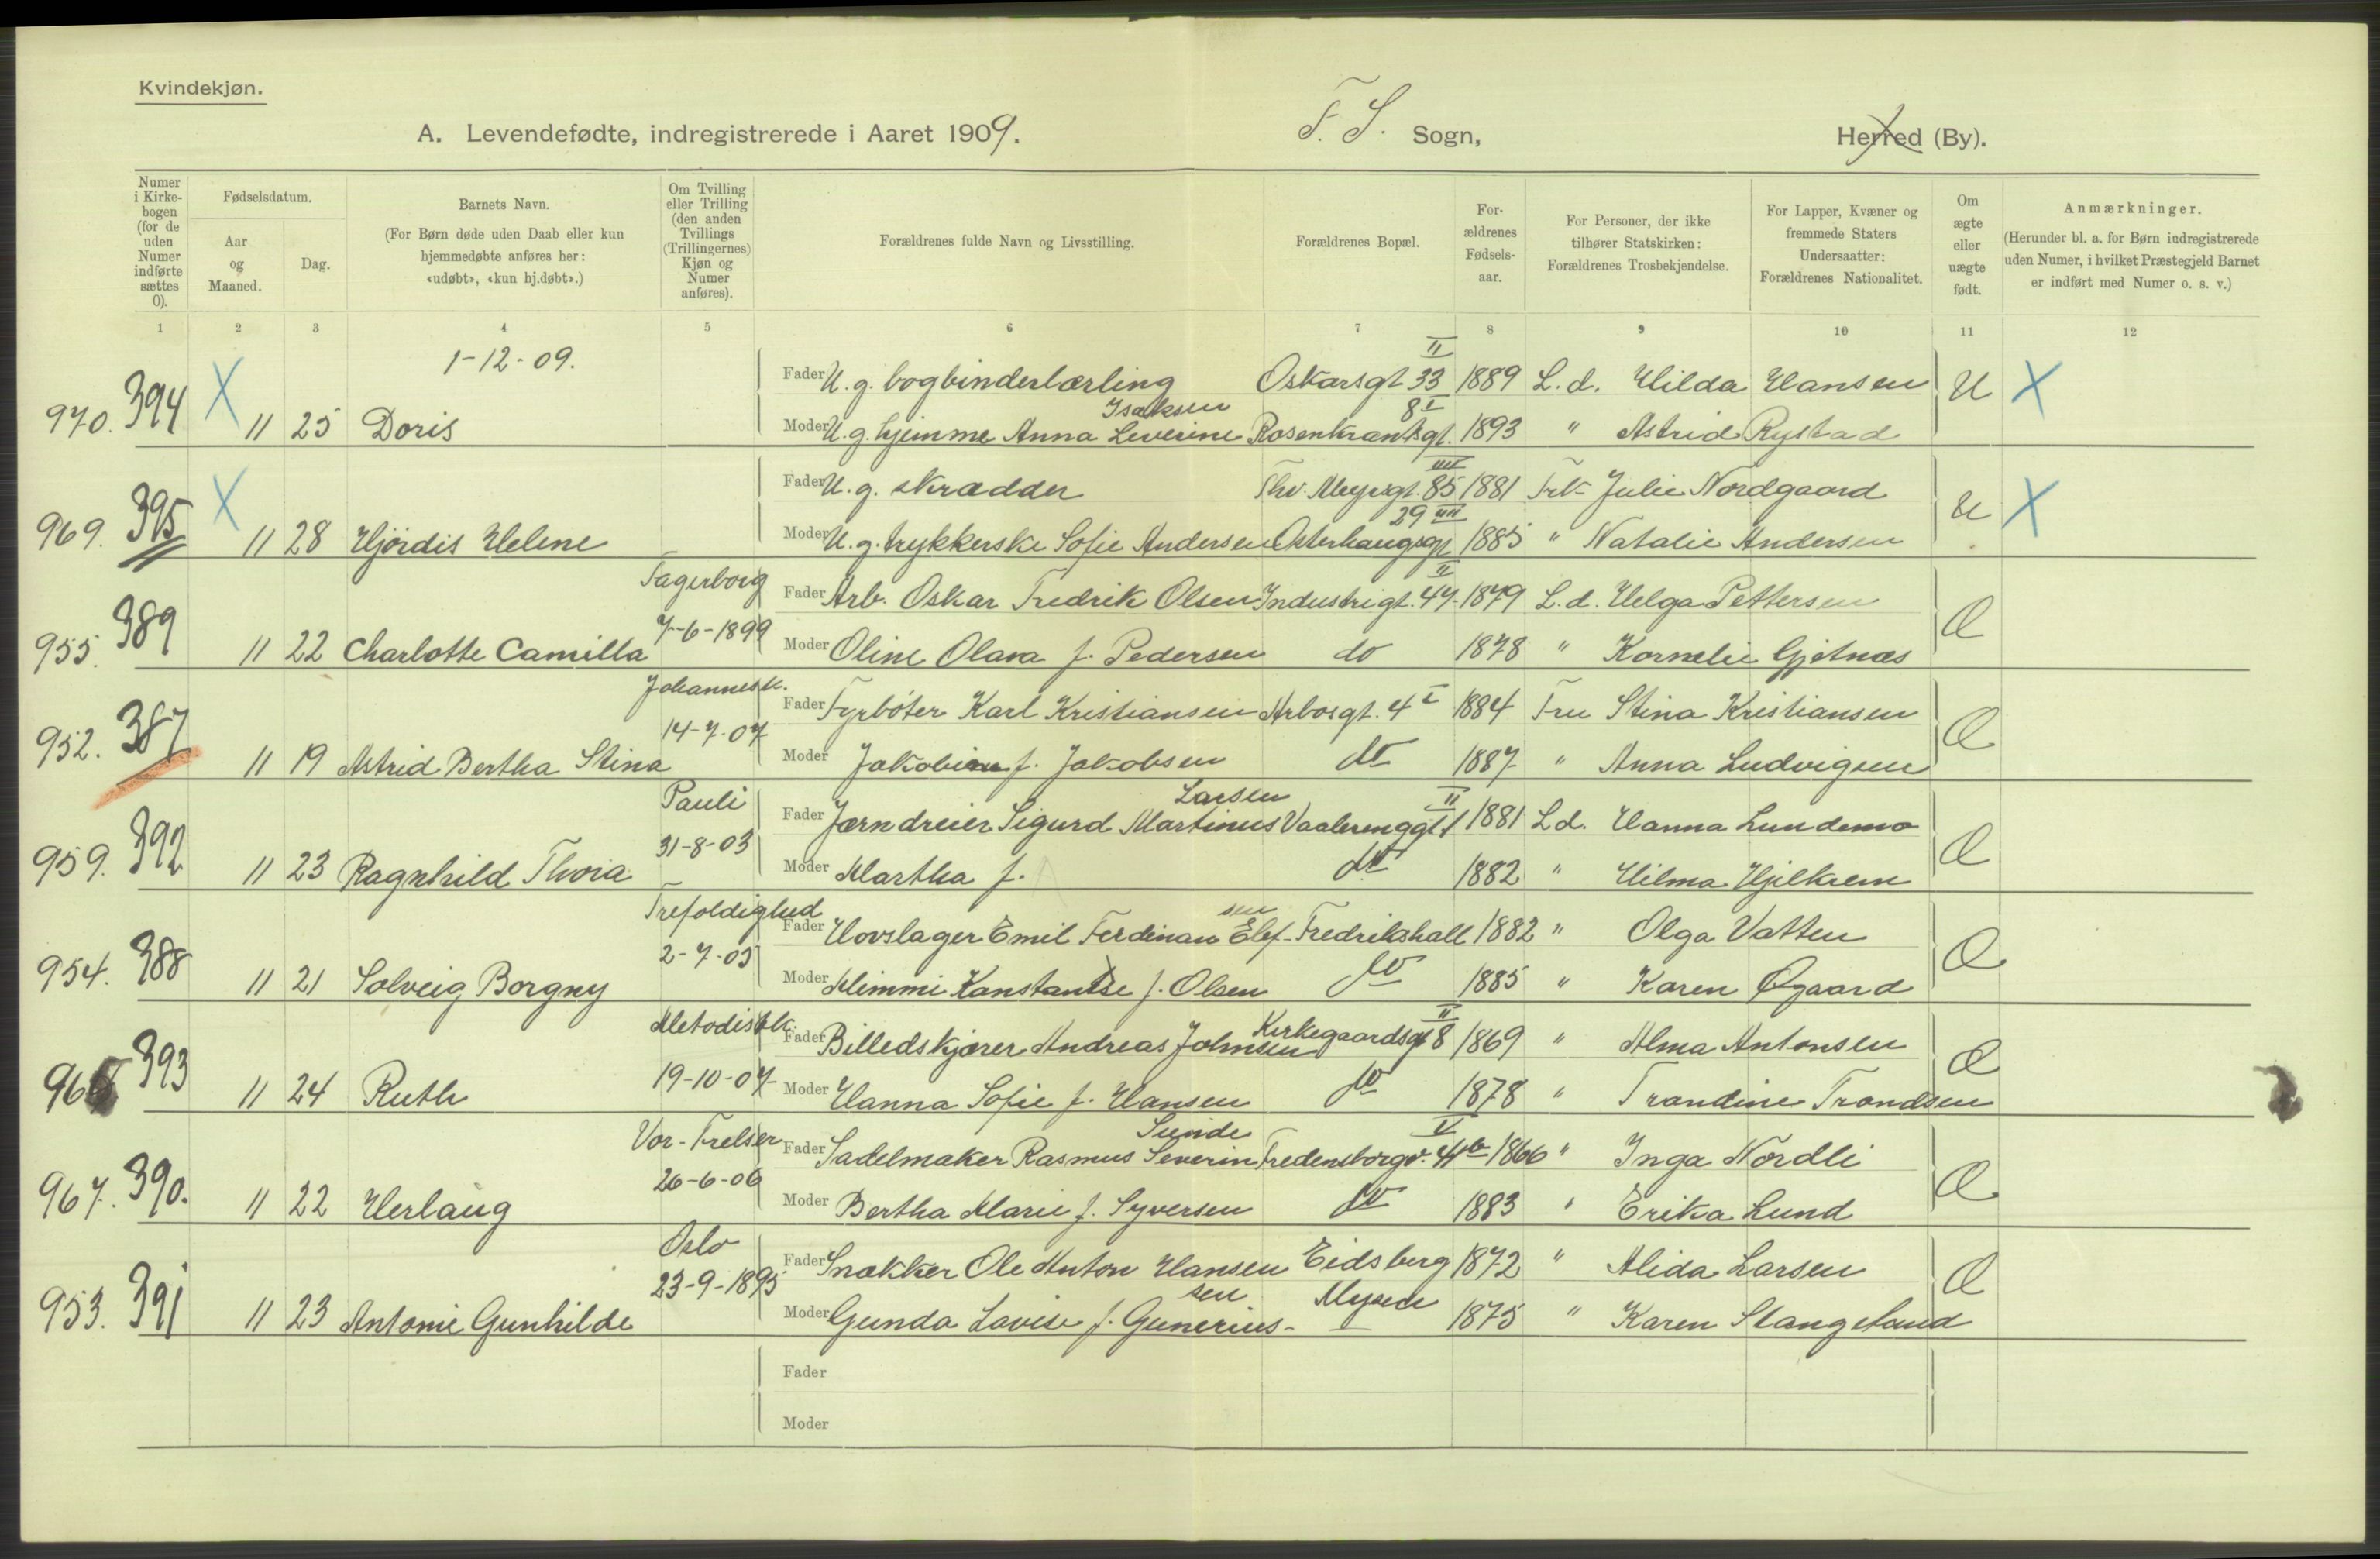 Kvindekjøn.
A. Levendefødte, indregistrerede i Aaret 1909. F. S. Sogn, Herred (By).
Numer i Kirkebogen (for de uden Numer indførte sættes 0).
Fødselsdatum.
Aar og Maaned.
Dag.
Barnets Navn.
(For Børn døde uden Daab eller kun hjemmedøbte anføres her: «udøbt», «kun hj.døbt».)
Om Tvilling eller Trilling (den anden Tvillings (Trillingernes) Kjøn og Numer anføres).
Forældrenes fulde Navn og Livsstilling.
Forældrenes Bopæl.
For-ældrenes Fødsels-aar.
For Personer, der ikke tilhører Statskirken: Forældrenes Trosbekjendelse.
For Lapper, Kvæner og fremmede Staters Undersaatter: Forældrenes Nationalitet.
Om ægte eller uægte født.
Anmærkninger.
(Herunder bl. a. for Børn indregistrerede uden Numer, i hvilket Præstegjeld Barnet er indført med Numer o. s. v.)
1 2 3 4 5 6 7 8 9 10 11 12
1-12-09.
Fader U. g. bogbinderlærling Oskarsgt 33 II 1889 L. d. Hilda Hansen U X
970. 394 X 11 25 Doris Moder U. g. hjemme Anna Leverine Isaksen Rosenkrantsgt. 8 I 1893 " Astrid Rystad
Fader U. g. skrædder Thv. Meyersgt. 85 IIII 1881 Frk Julie Nordgaard U X
969. 395 X 11 28 Hjördis Helene Moder U. g. trykkerske Sofie Andersen Østerhaugsgt 29 IIII 1885 " Natalie Andersen
Fagerborg Fader Arb. Oskar Fredrik Olsen Industrigt. 47 II 1879 L. d. Helga Pettersen Æ
955. 389 11 22 Charlotte Camilla 7-6-1899 Moder Oline Olava f. Pedersen do 1878 " Kornelie Gjetnæs
Johannesk. Fader Fyrböter Karl Kristiansen Arbosgt. 4 I 1884 Fru Stina Kristiansen Æ
952. 387 11 19 Astrid Bertha Stina 14-7-07 Moder Jakobine f. Jakobsen do 1887 " Anna Ludvigsen
Pauli Fader Jærndreier Sigurd Martinus Larsen Vaalerenggt 1 II 1881 L d. Hanna Lundemo Æ
959. 392 11 23 Ragnhild Thora 31-8-03 Moder Martha f. do 1882 " Hilma Hjelkrem
Trefoldighed Fader Hovslager Emil Ferdinan Elefsen Fredrikshall 1882 " Olga Vatten Æ
954. 388 11 21 Solveig Borgny 2-7-05 Moder Mimmi Konstanse f. Olsen do 1885 " Karen Øgaard
Metodistk. Fader Billedskjærer Andreas Johnsen Kirkegaardsgt 8 II 1869 " Alma Antonsen Æ
966 393 11 24 Ruth 19-10-07 Moder Hanna Sofie f. Hansen do 1878 " Trandine Trondsen
Vor-Frelser Fader Sadelmaker Rasmus Severin Sunde Fredensborgv. 41b V 1866 " Inga Nordli Æ
967. 390. 11 22 Herlaug 26-6-06 Moder Bertha Marie f. Syversen do 1883 " Erika Lund
Oslo Fader Snækker Ole Anton Hansen Eidsberg 1872 " Alida Larsen Æ
953. 391 11 23 Antonie Gunhilde 23-9-1895 Moder Gunda Lovise f. Gunerius-sen Mysen 1875 " Karen Stangeland
Fader
Moder